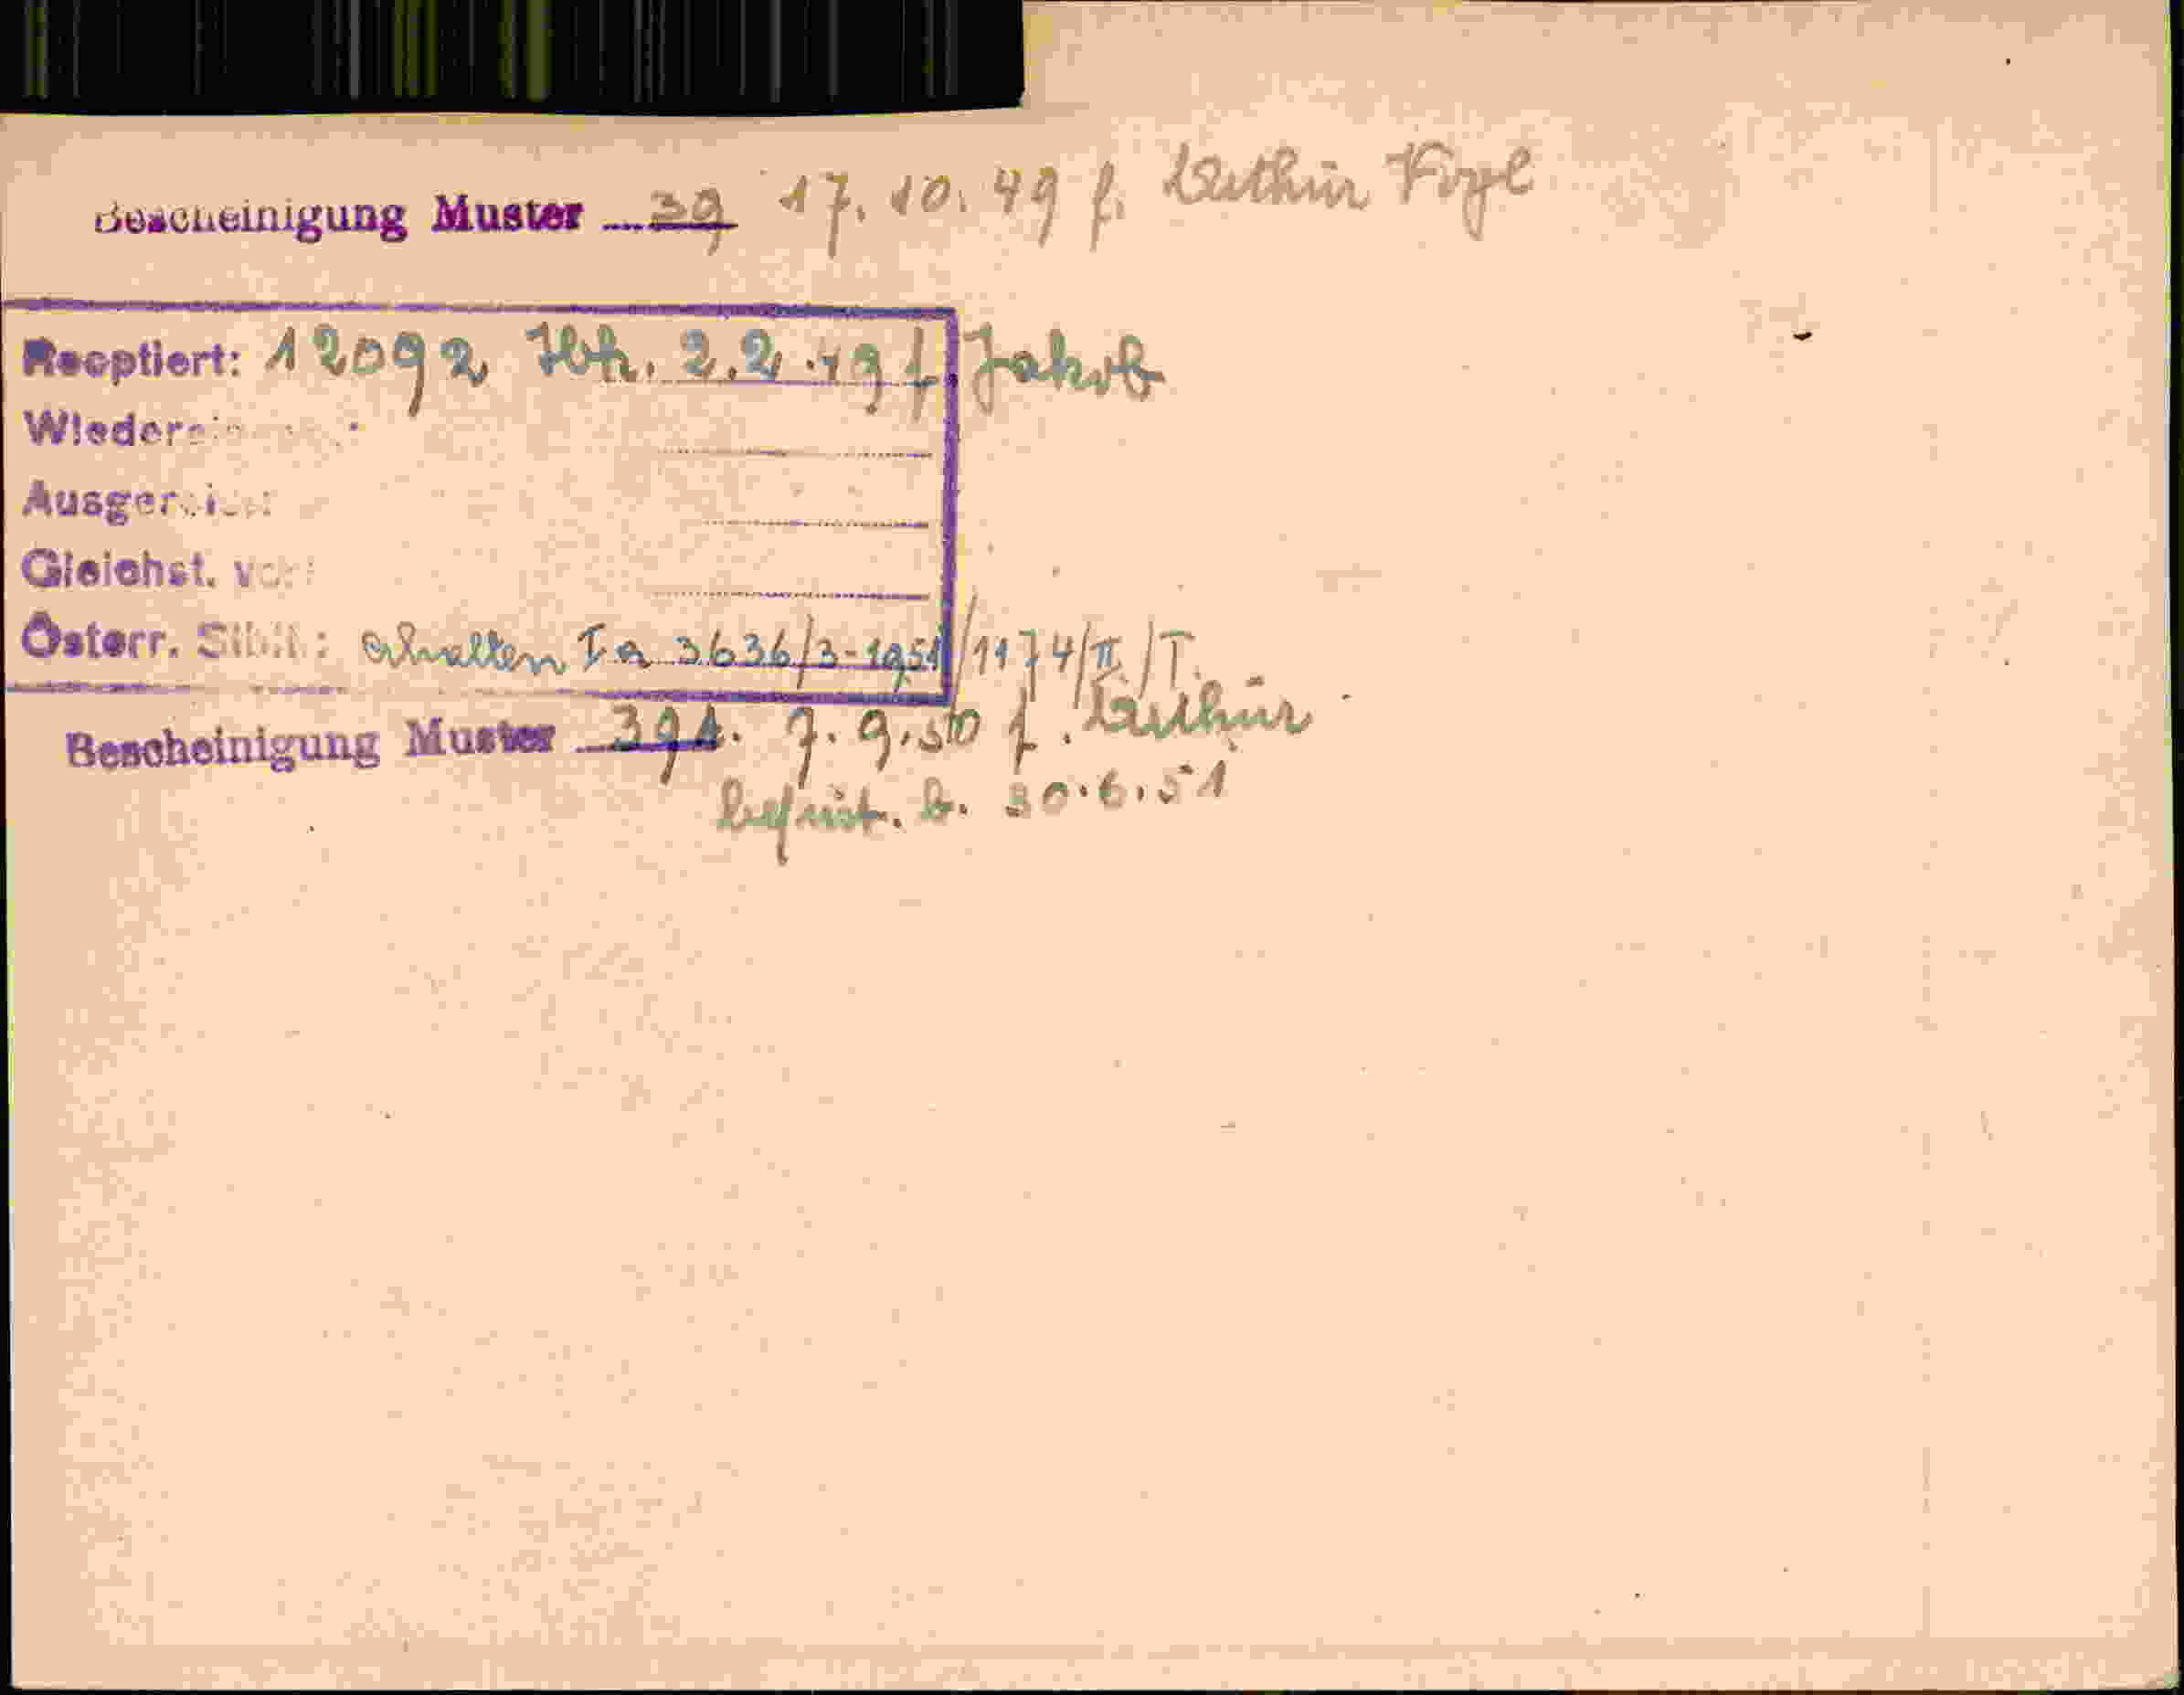 Bescheinigung Muster 39 17.10.49 f. Arthur Vogl
Reoptiert: 12092 2.2.49 f. Jakob
Gleichst. von:
Österr. Stb.: erhalten Ia 3636/3-1951/1174/II/T.
Bescheinigung Muster 391. 7.9.50 f. Arthur
befrist. b. 30.6.51